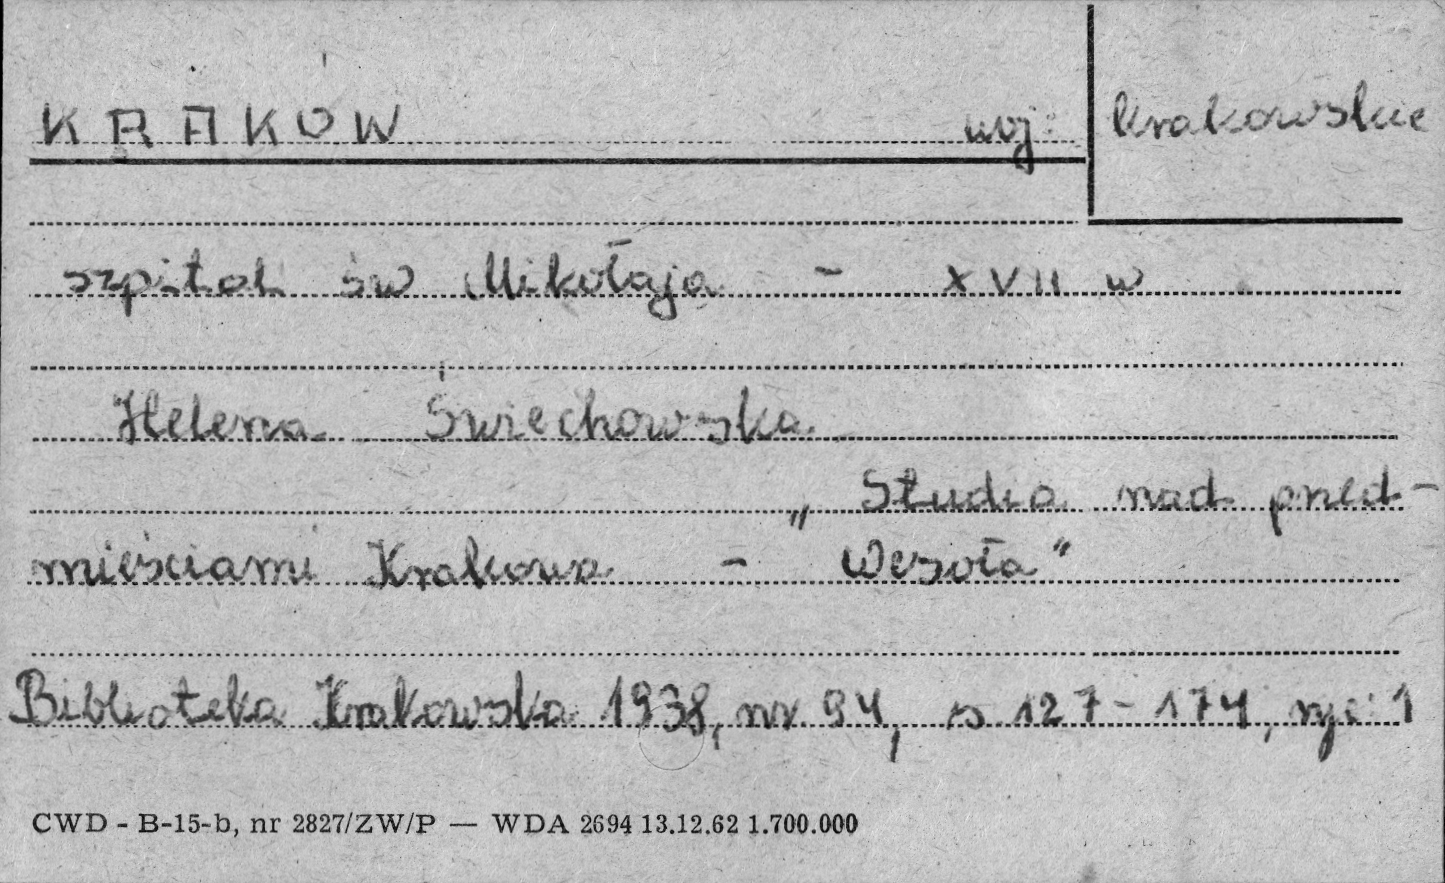 KRAKÓW woj: krakowskie
szpital św Mikołaja - XVII w
Helena Świechowska
„Studia nad przed-
mieściami Krakowa - Wesoła"
Biblioteka Krakowska 1938, nr 94, s 127-174, ryc: 1
CWD - B-15-b, nr 2827/ZW/P — WDA 2694 13.12.62 1.700.000